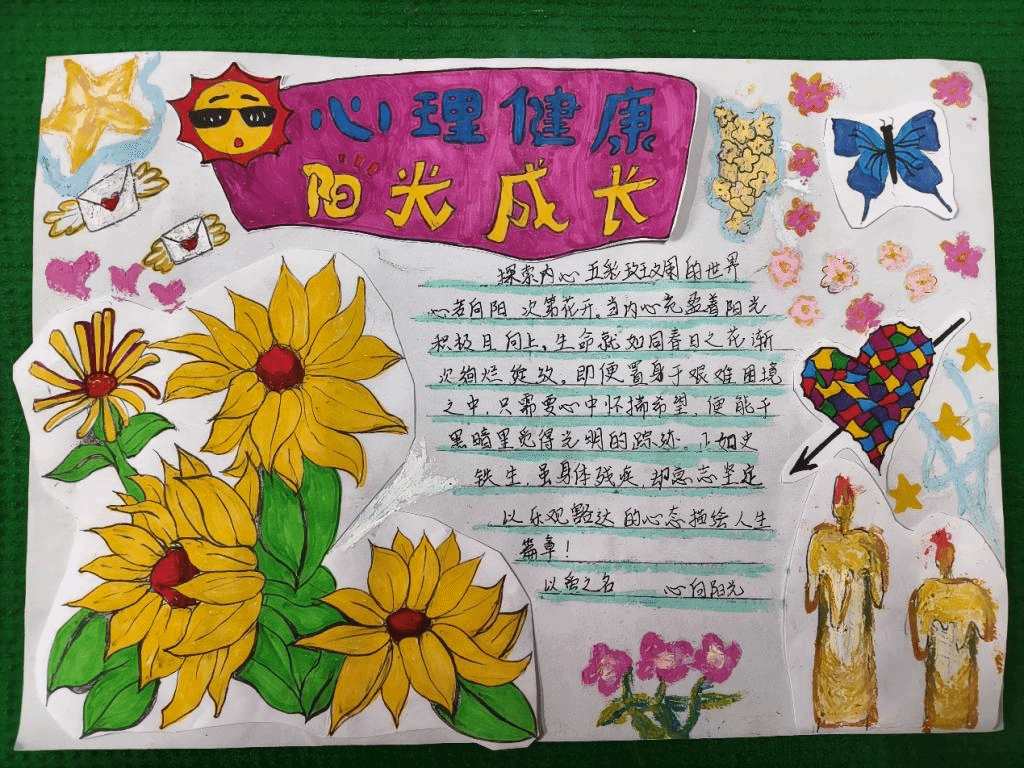 心理健康
阳光成长
探索内心五彩斑斓的世界
心若向阳 次第花开。当内心充盈着阳光
积极且向上,生命就如同春日之花渐
次绚烂绽放。即便置身于艰难困境
之中,只需要心中怀揣希望,便能于
黑暗里觅得光明的踪迹。正如史
铁生,虽身体残疾,却意志坚定
以乐观豁达的心态描绘人生
篇章!
以爱之名 心向阳光